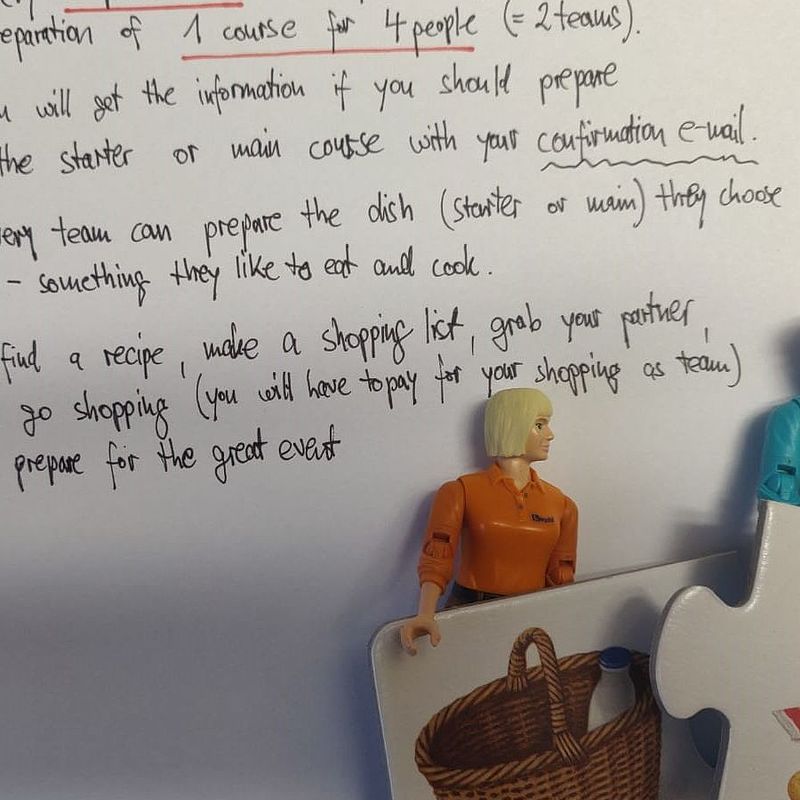 eparation of 1 course for 4 people (= 2 teams).
u will get the information if you should prepare
the starter or main course with your confirmation e-mail.
ery team can prepare the dish (starter or main) they choose
– something they like to eat and cook.
find a recipe, make a shopping list, grab your partner,
go shopping (you will have to pay for your shopping as team)
prepare for the great event